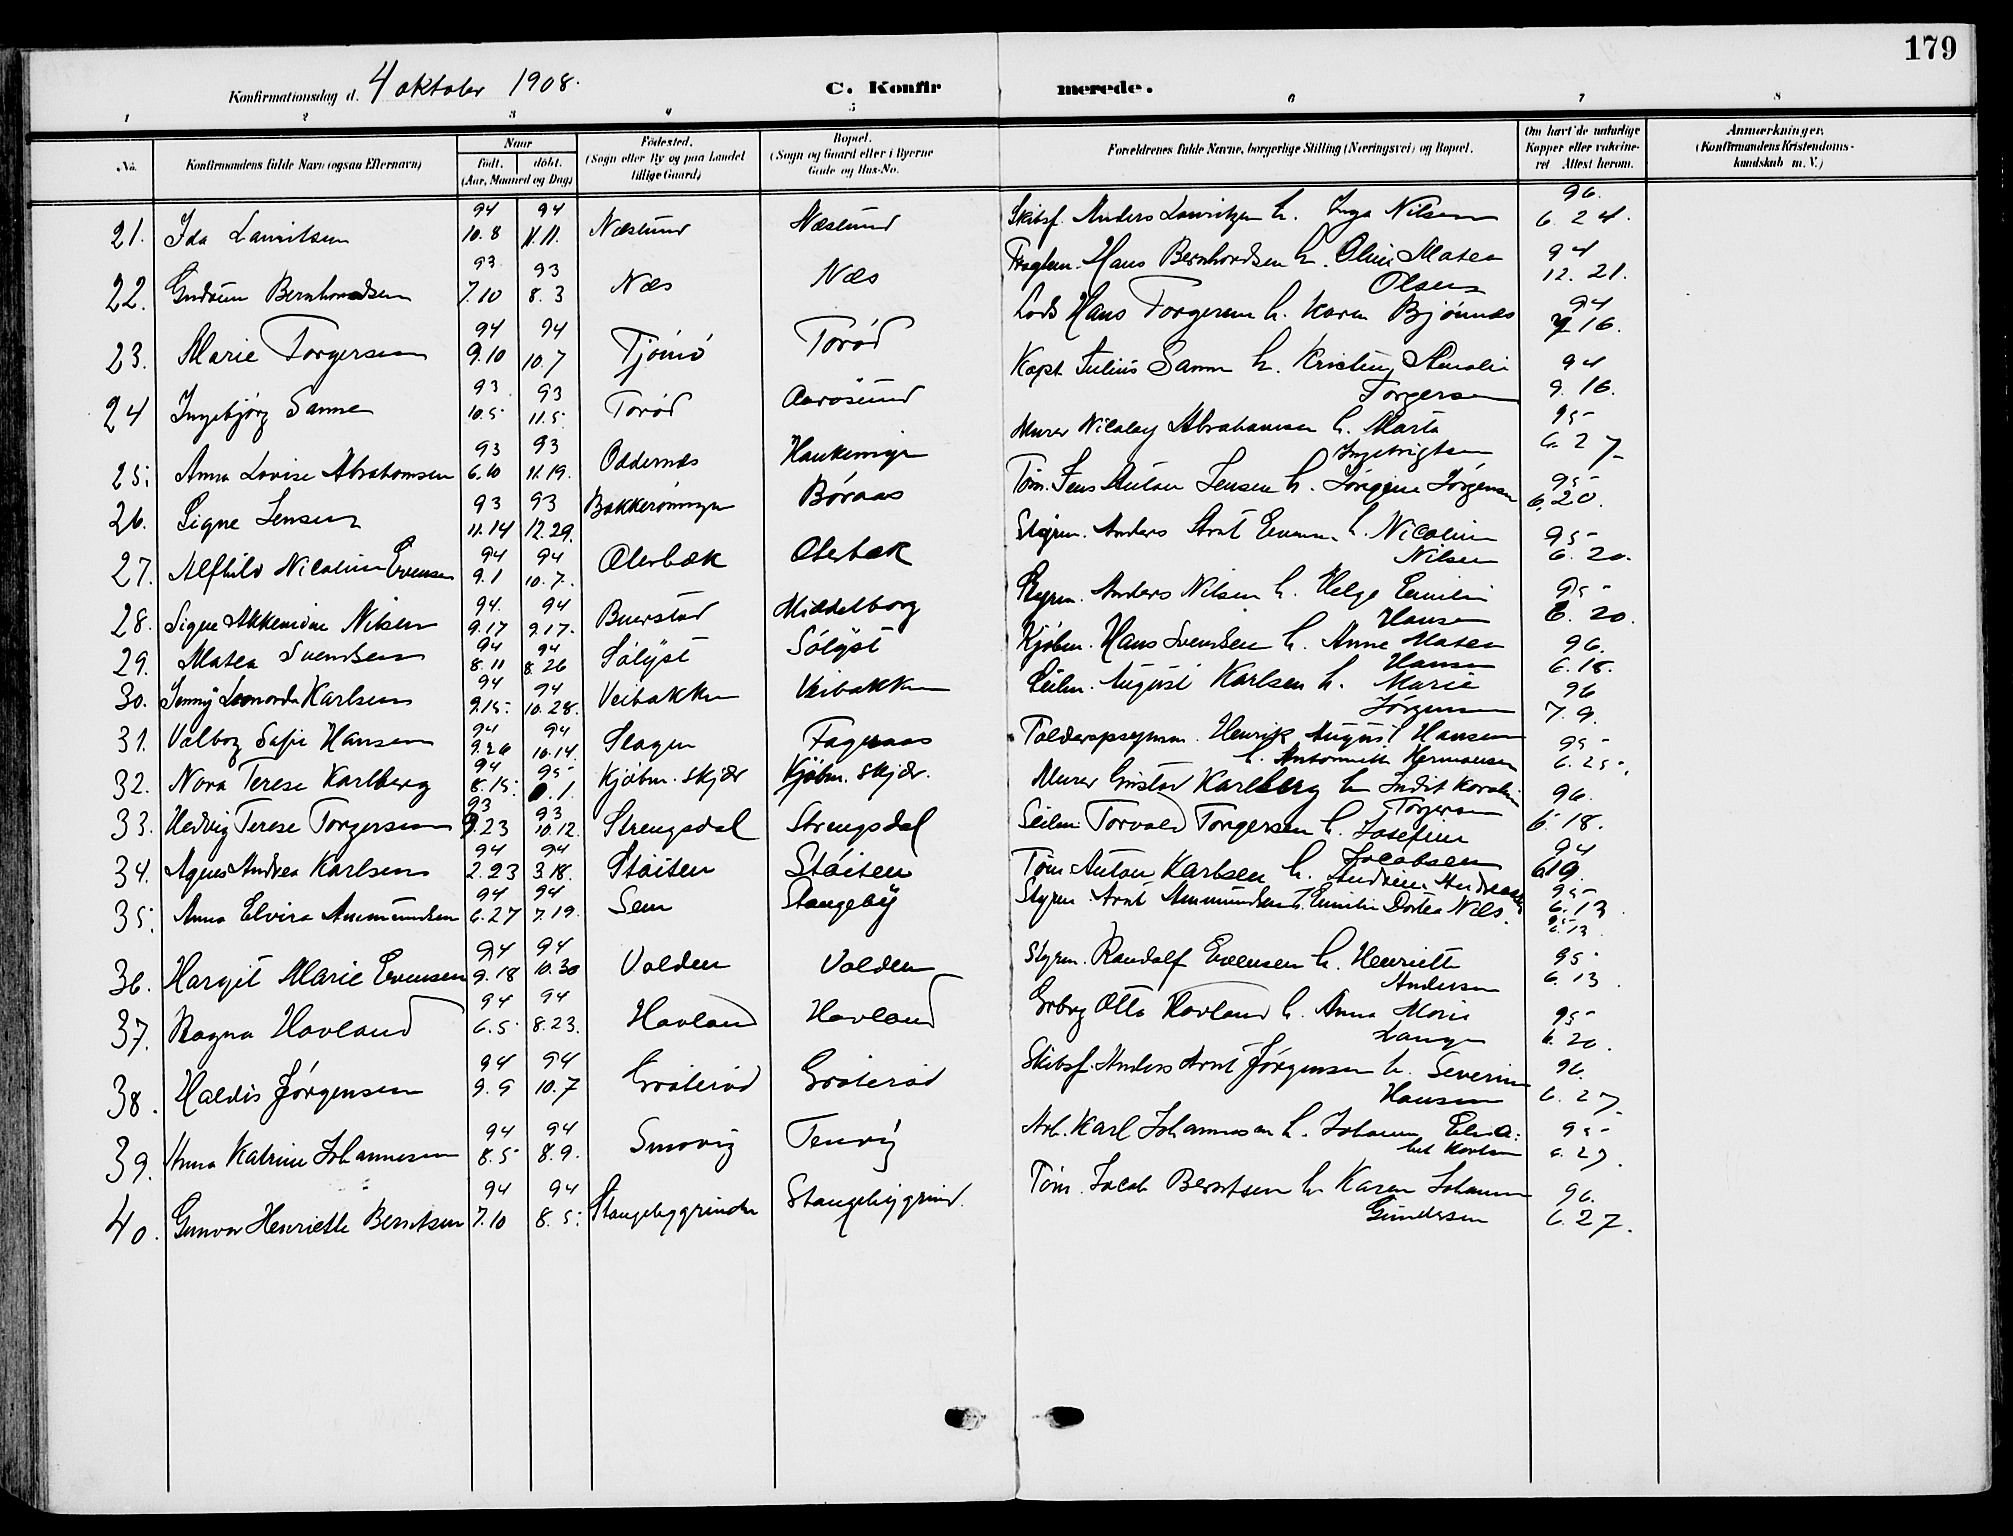 179
Konfirmationsdag d. 4 oktober 1908.
C. Konfir merede.
1 2 3 4 5 6 7 8
No.
Konfirmandens fulde Navn (ogsaa Efternavn)
Naar
født. døbt.
(Aar, Maaned og Dag)
Fødested.
(Sogn eller By og paa Landet
tillige Gaard)
Bopæl.
(Sogn og Gaard eller i Byerne
Gade og Hus-No.
Forældrenes fulde Navne, borgerlige Stilling (Næringsvei) og Bopæl.
Om havt de naturlige
Kopper eller vakcine-
ret Attest herom.
Anmærkninger.
(Konfirmandens Kristendoms-
kundskab m. V.)
94 94 96.
21. Ida Lauritsen 10.8 11.11. Næslund Næslund Skibsf. Anders Lauritzen h. Inga Nilsen 6. 24.
93 93 94
22. Gudrun Bernhardsen 7.10 8.3 Næs Næs Hans Bernhardsen h. Oline Matea 12. 21.
Olsen
94 94 94
23. Marie Torgersen 9.10 10.7 Tjömö Torød Lods Hans Torgersen h. Karen Bjönnes 16.
93 93 94
24 Ingebjørg Sanne 10.5 11.5 Torød Aarösund Kapt. Julius Sanne h. Kristing Amalie 9. 16.
Torgersen
93 93 95
25. Anna Lovise Abrahamsen 6.10 11.19. Oddernes Murer Nicolay Abrahamsen h. Marta 6. 27
Ingebrigtsen
93 93 95
26. Signe Jensen 11.14 12.29. Bakkerönningen Böraas Töm. Jens Anton Jensen h. Jørgine Jørgensen 6.20.
94 94 95
27. Alfhild Nicoline Evensen 9.1 10.7. Oterbæk Oterbæk Styrm. Anders Arnt Evensen h. Nicoline 6. 20.
Nilsen
94. 94 95
28. Signe Nilsen 9.17 9.17. Buerstad Middelborg Styrm. Anders Nilsen h. Helge Emilie 6. 20.
Hansen
94 94 96.
29. Matea Svendsen 8.11 8.26 Sölyst Sölyst Kjøbm. Hans Svendsen h. Anne Matea 6.18.
Hansen
94 94 96
30. Jenny Leonarda Karlsen 9.15. 10.28. Veibakken Veibakken Seilm. August Karlsen h. Marie 7.9.
Jørgensen
94 94 95
31. Valborg Sofie Hansen 9.26 10.14. Slagen Fageraas Toldoppsynsm. Henrik August Hansen 6.25.
h. Antonette Hermansen
94 95 96.
32. Nora Terese Karlberg 8.15. .1. Kjöbm. skjær Kjöbm. skjær. Murer Gustav Karlberg h. 6.18.
Torgersen
93 93 94
33. Hedvig Terese Torgersen 9.23 10.12. Strengsdal Strengsdal Seilm. Torvald Torgersen h. Josefine 6.19.
Jacobsen
94 94 95
34. Agnes Andrea Karlsen 2.23 3.18. Støiten Støiten Töm. Anton Karlsen h. Andrine Andreassen 6.13
94 94 95
35. Anna Elvira Ammundsen 6.27 7.19. Sem Stangeby Styrm. Arnt Ammundsen h. Emilie Dortea Nils. 6.13.
94 94 95
36. Margit Marie Evensen 9.18 10.30 Valden Valden Styrm. Randolf Evensen h. Henriette 6.13.
Andersen
94 94 95
37. Ragna Havland 6.5 8.23. Havland Havland Grbrg Otto Havland h. Anna Marie 6. 20.
Lange
94 94 96.
38. Haldis Jørgensen 9.9 10.7 Graterød Graterød Skibsf. Anders Arnt Jørgensen h. Severine 6. 27
Hansen
94 94 95
39. Anna Katrine Johannesen 8.5 8.9. Smovig Tenvig Arb. Karl Johannesen h. Johanne Elisa- 6. 27.
bet Karlsen
94 94 96.
40. Gunvor Henriette Berntsen 7.10 8.5. Stangebygrinden Stangebygrind. Töm. Jacob Berntsen h. Karen Johanne 6.27.
Gundersen